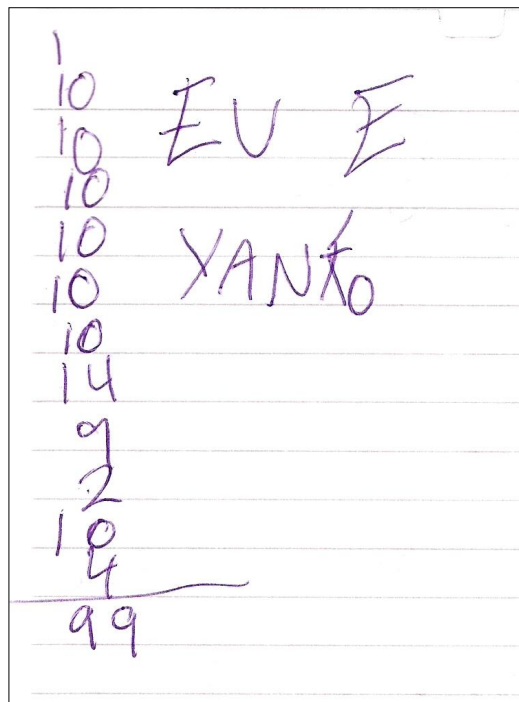 1
10
10
10
10
10
10
14
9
2
10
4
99
EU E